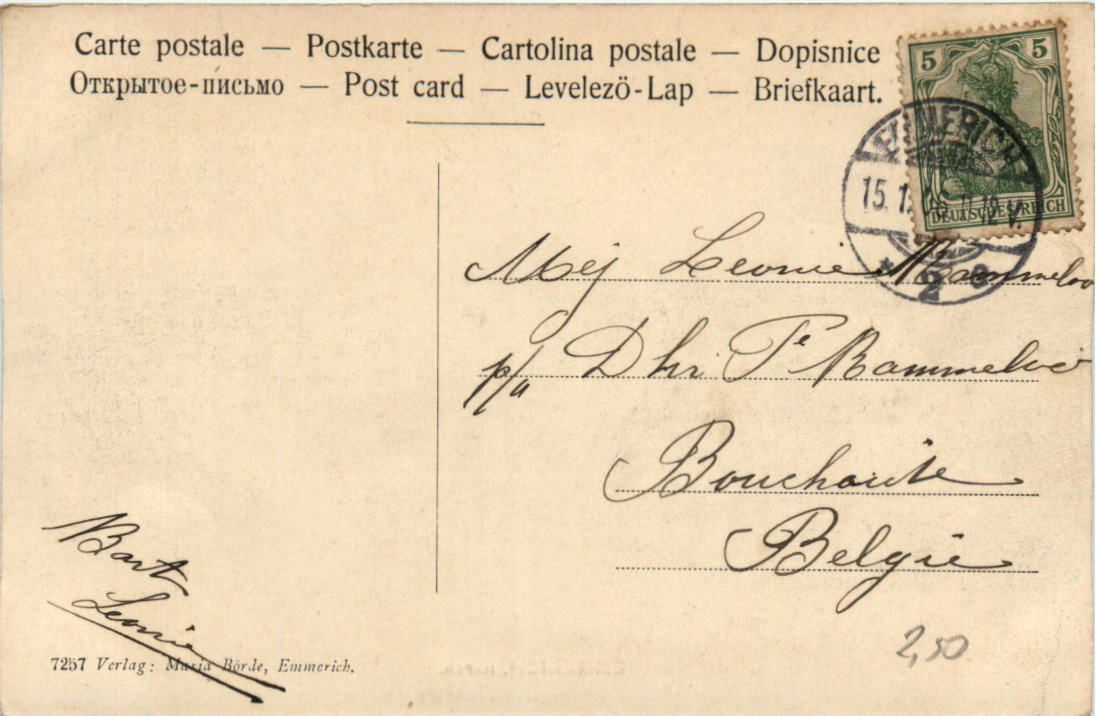 Carte postale — Postkarte — Cartolina postale — Dopisnice
Открытое-письмо — Post card — Levelezö-Lap — Briefkaart.
5 5
DEUTSCHES REICH
EMMERICH
* 2 a
Mej Leonie Bammeloo
p/a Dhr Bammeloo
Bouchaute
Belgie
Bart
Leonie
7257 Verlag: Maria Börde, Emmerich.
2,50